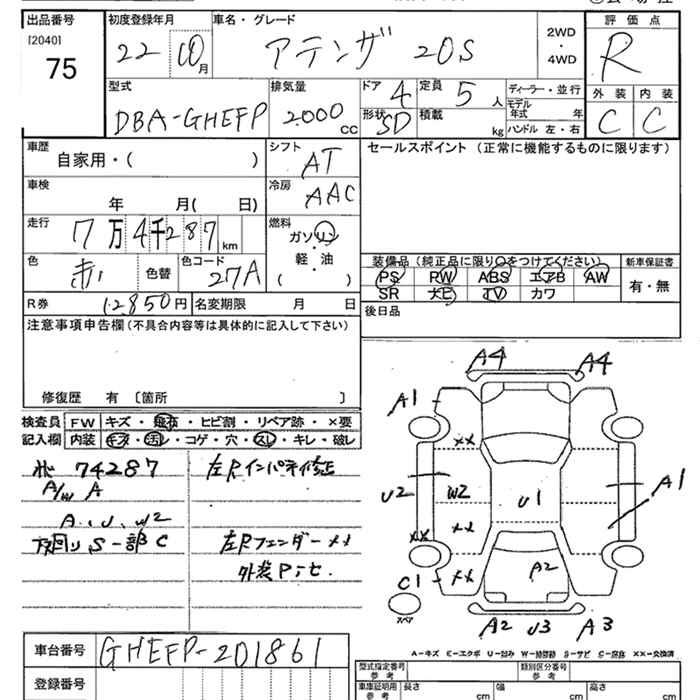 出品番号 初度登録年月 車名・グレード 評価点
[2040]
75 22 10月 アテンザ 20S 2WD・4WD R
型式 排気量 ドア 4 定員 5人 ディーラー・並行 外装 内装
DBA-GHEFP 2000cc 形状 SD 積載 kg モデル年式 年 C C
ハンドル 左・右
車歴 自家用・( ) シフト AT セールスポイント(正常に機能するものに限ります)
車検 年 月( 日) 冷房 AAC
走行 7万4千287km 燃料 ガソリン 軽・油 ( )
色 赤 色替 色コード 27A
装備品(純正品に限り○をつけてください) 新車保証書
PS RW ABS エアB AW 有・無
SR ナビ TV カワ
R券 12850円 名変期限 月 日 後日品
注意事項申告欄(不具合内容等は具体的に記入して下さい)
修復歴 有 〔箇所 〕
検査員 FW キズ・飛石・ヒビ割・リペア跡・×要
記入欄 内装 キズ・汚レ・コゲ・穴・スレ・キレ・破レ
74287 左Rインパネ修正
A/W A
A、U、W2
下回りS 一部C 左Rフェンダー××
外装Pキセ.
A4 A4
A1
××
U2 W2 U1 A1
×× ××
C1 ×× A2
スペア
A2 U3 A3
A-キズ E-エクボ U-凹み W-補修跡 S-サビ C-腐食 ××-交換済
車台番号 GHEFP-201861
登録番号
型式指定番号 類別区分番号
車庫証明用参考 長さ cm 幅 cm 高さ cm